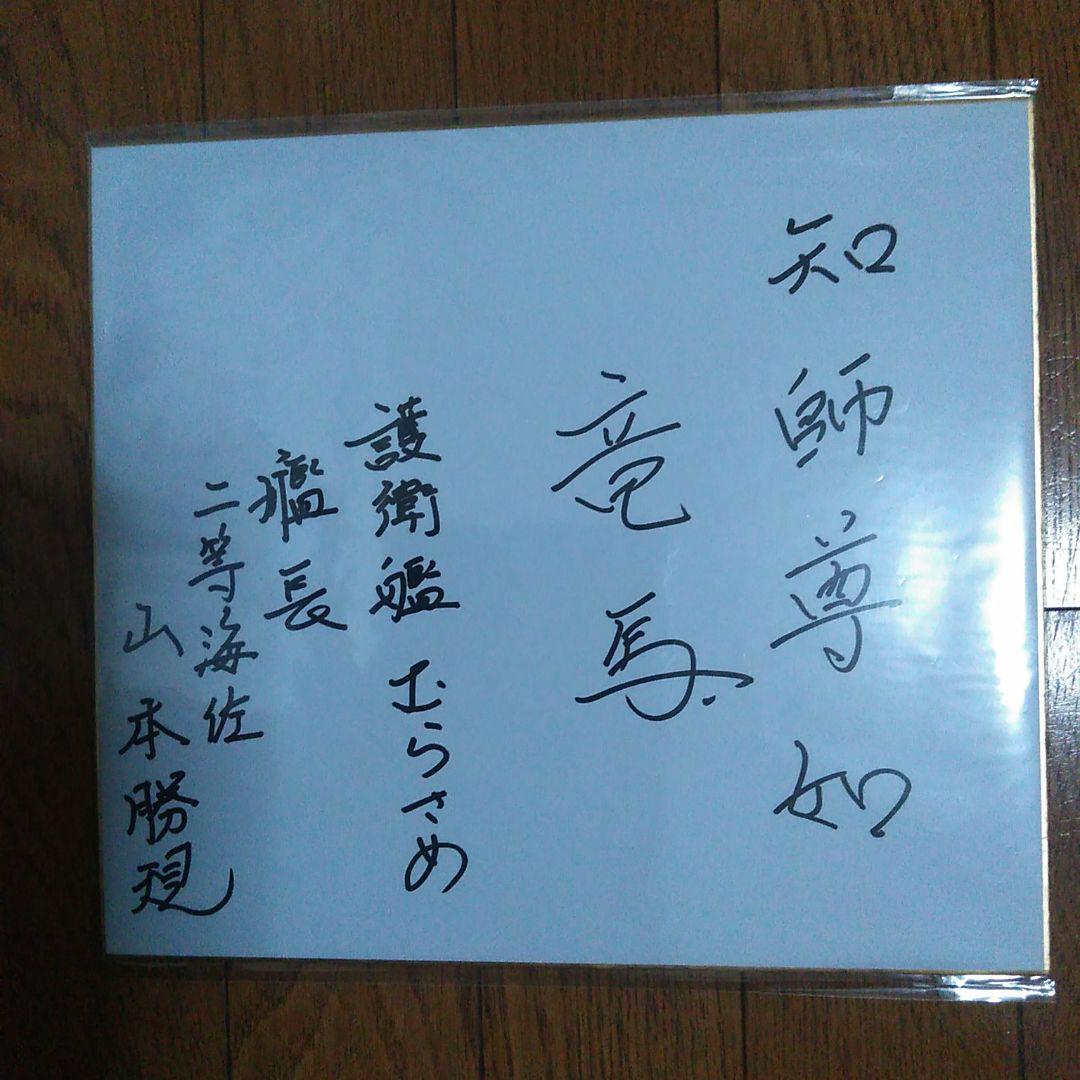 知師尊如
竜馬
護衛艦 むらさめ
艦長
二等海佐
山本勝現